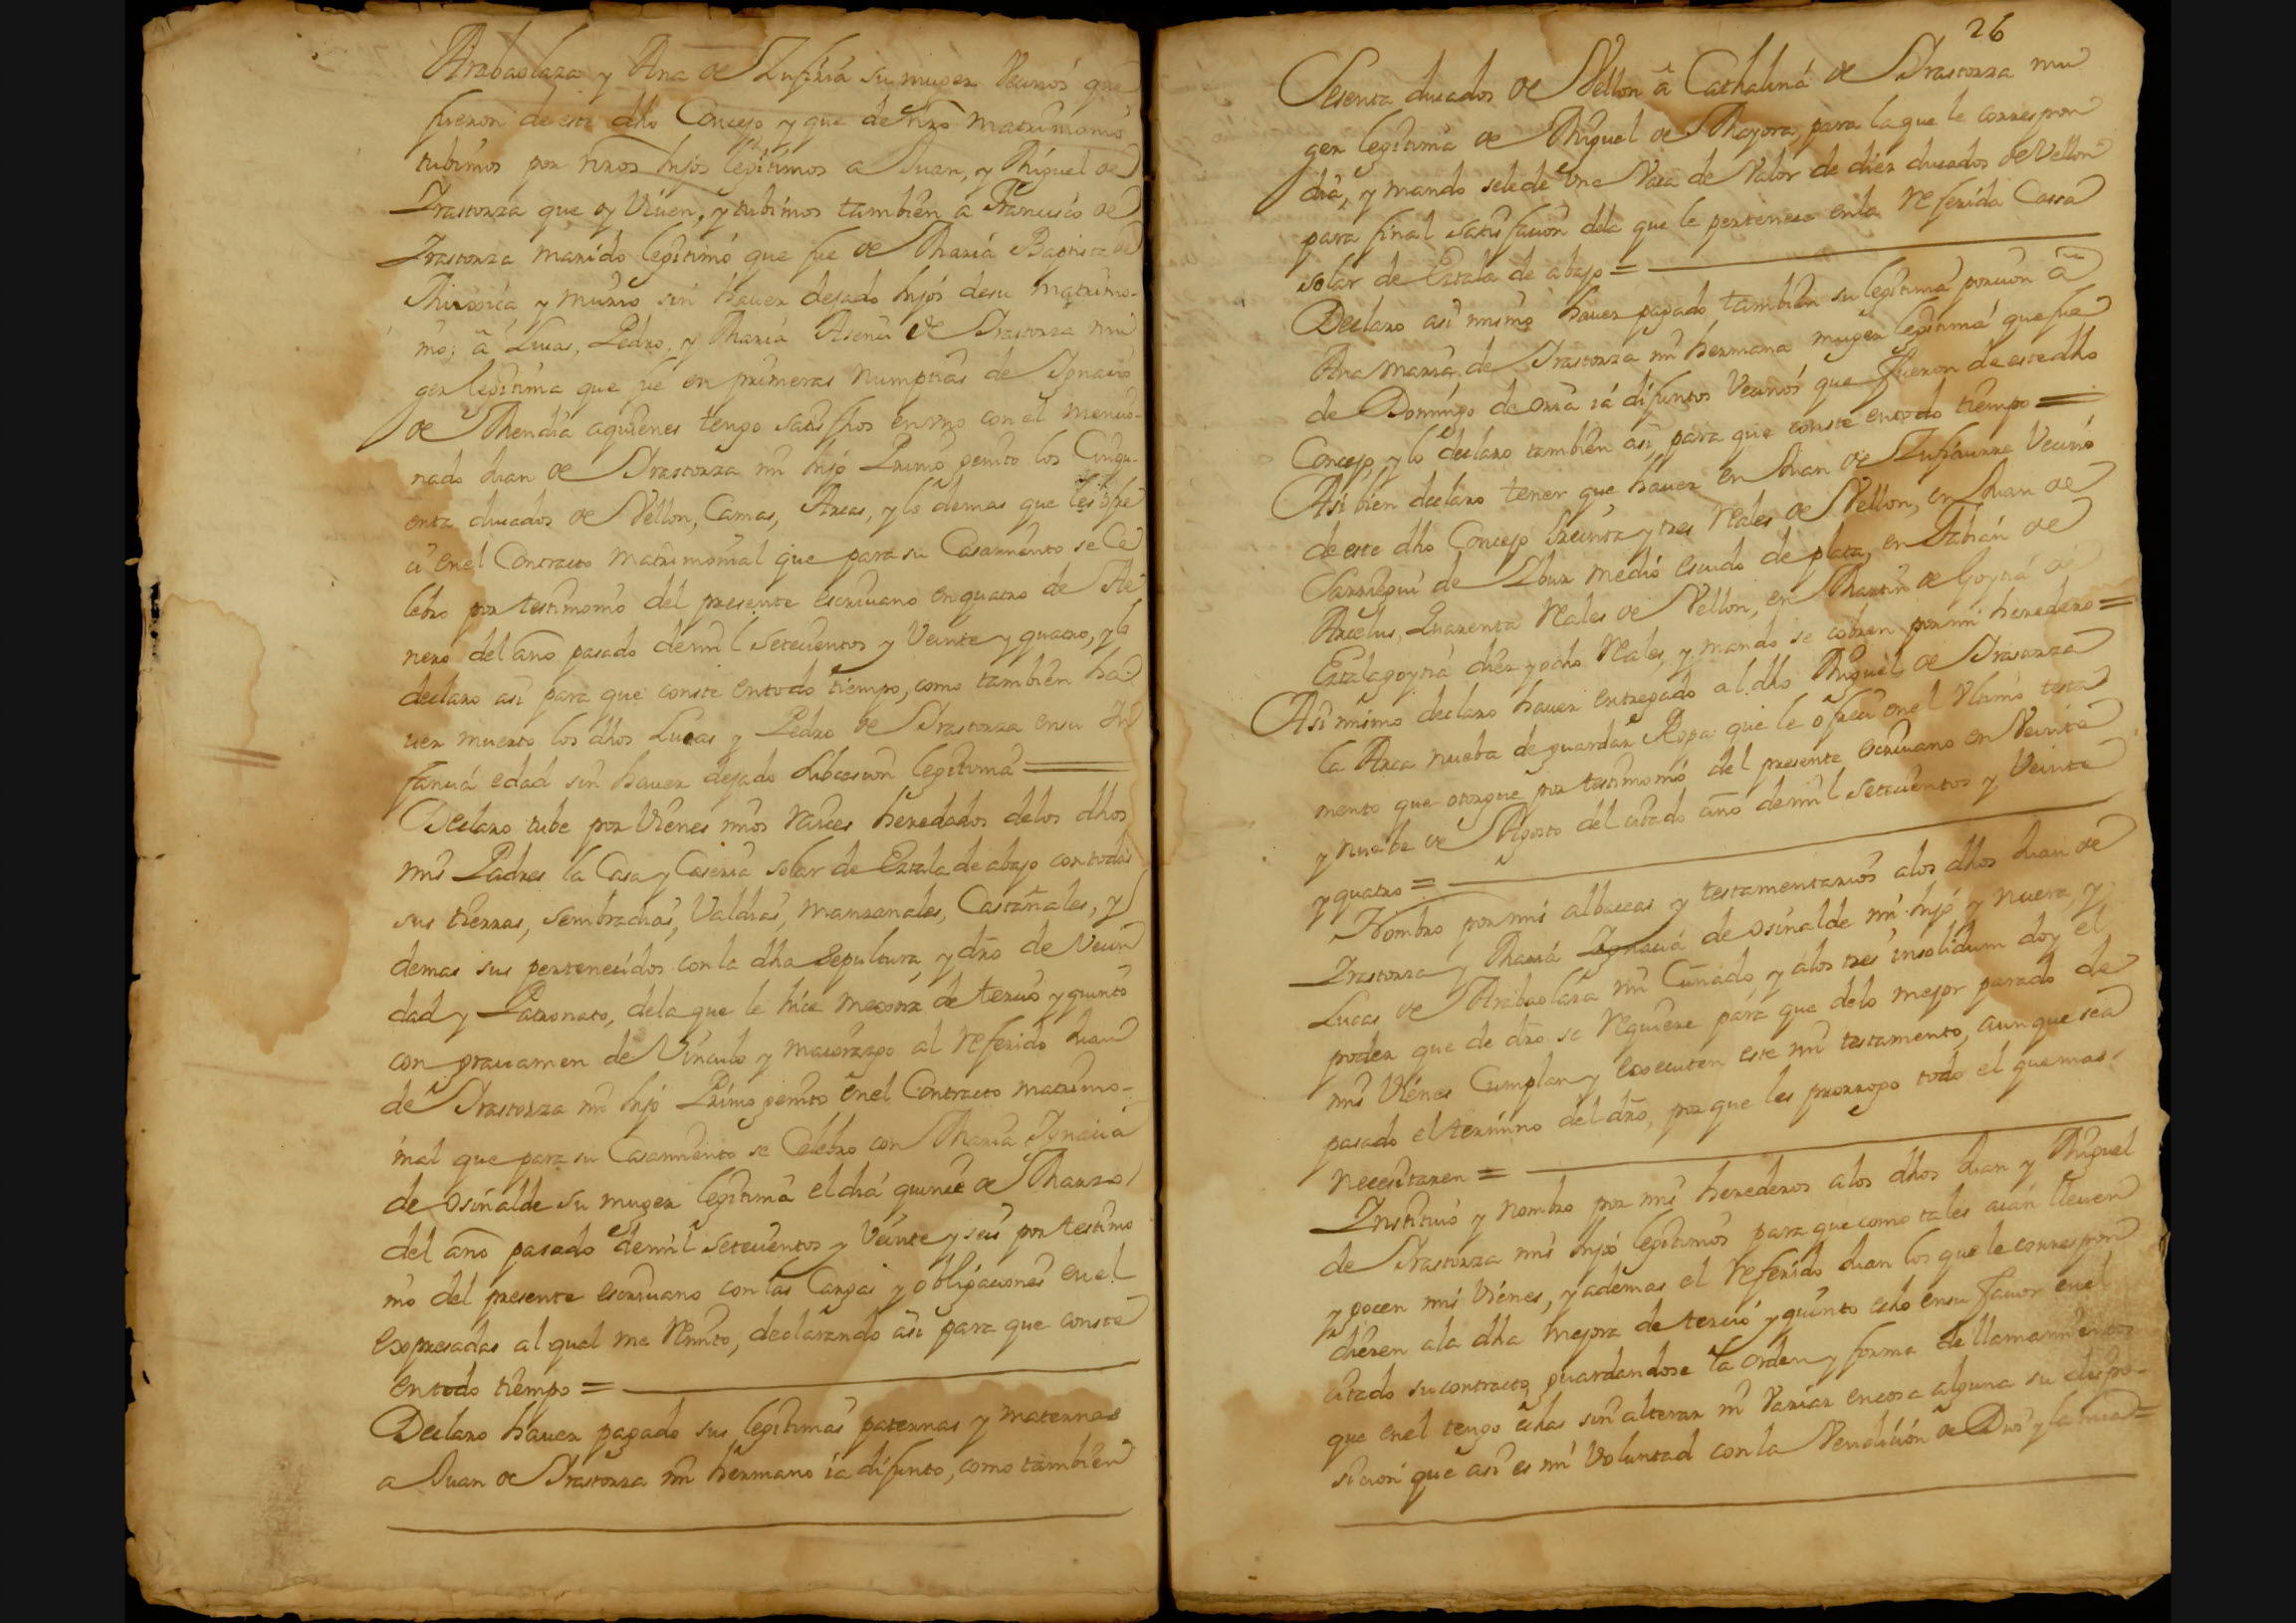 Arabaolaza y Ana de Zufiria su muger Vecinos que
fueron de este dho Concejo, y que de nro matrimonio
tubimos por nros hijos legitimos a Juan, y Miguel de
Irastorza que oy Viuen, y tubimos tambien a Francisco de
Irastorza marido legitimo que fue de Maria Baptista de
y murio sin hauer dejado hijos de su matrimo-
nio; â Lucas, Pedro, y Maria Asencia de Irastorza mu
ger legitima que fue en primeras numptias de Ignacio
de Mendia aquienes tengo satisfhos en vno con el mencio-
nado Juan de Irastorza mi hijo Primo genito los Cinqu-
enta ducados de Vellon, Camas, Arcas, y lo demas que les ofre
ci en el Contracto matrimonial que para su Casamiento se Ce
lebro por testimonio del presente escriuano en quatro de He
nero del año pasado de mil Setecientos y Veinte y quatro, y lo
declaro asi para que conste en todo tiempo, como tambien ha
uer muerto los dhos Lucas y Pedro de Irastorza en su In
fancia edad sin hauer dejado Subcesion legitima =
Declaro tube por Vienes mios raices heredados delos dhos
mis Padres la Casa y Caseria solar de Ezala de abajo con todas
sus tierras, sembradias, Valdias, manzanales, Castañales, y
demas sus pertenecidos con la dha sepultura, y dro de Vecin
dad y Patronato, dela que le hice mecora de tercio y quinto
con grauamen de Vinculo y maiorazgo al referido Juan
de Irastorza mi hijo Primo genito en el Contracto matrimo-
nial que para su Casamiento se Celebro con Maria Ignacia
de Osinalde su muger legitima el dia quince de Marzo
del año pasado de mil Setecientos y Veinte y seis por testimo
nio del presente escriuano con las Cargas y obligaciones en el
expresadas al qual me remito, declarando asi para que conste
en todo tiempo =
Declaro hauer pagado sus legitimas paternas y maternas
a Juan de Irastorza mi hermano ia difunto, como tambien
26
Sesenta ducados de Vellon â Cathalina de Irastorza mu
ger legitima de Miguel de Mayora, para la que le correspon
dia, y mando se le de vna Vaca de Valor de diez ducados de Vellon
para final satisfacion dela que le pertenece en la referida Cassa
solar de Ezala de abajo =
Declaro asi mismo hauer pagado tambien su legitima porcion â
Ana Maria de Irastorza mi hermana muger legitima que fue
de Domingo de oria ia difuntos Vecinos que fueron de este dho
Concejo, y lo declaro tambien asi para que conste en todo tiempo =
Asi bien declaro tener que hauer en Juan de Zufiaurre Vecino
de este dho Concejo treinta y tres reales de Vellon, en Juan de
Sarriegui de medio escudo de plata, en Fabian de
Arcelus, Quarenta reales de Vellon, en Martin de Goytia
Ezalagoytia diez y ocho reales, y mando se cobren por mi heredero =
Asi mismo declaro hauer entregado al dho Miguel de Irastorza
la Arca nueba de guardar Ropa que le ofreci en el Vltimo testa
mento que otorgue por testimonio del presente escriuano en Veinte
y nuebe de Agosto del citado año de mil Setecientos y Veinte
y quatro =
Nombro por mis albaceas y testamentarios alos dhos Juan de
Irastorza y Maria Ignacia de Osinalde mi hijo y nuera, y
Lucas de Arabaolaza mi Cuñado, y alos tres insolidum doy el
poder que de dro se requiere para que delo mejor parado de
mis Vienes Cumplan y executen este mi testamento, aunque sea
pasado el termino del dro, por que les prorrogo todo el que mas
necesitaren =
Instituio y nombro por mis herederos alos dhos Juan y Miguel
de Irastorza mis hijos legitimos para que como tales aian lleuen
y gocen mis Vienes, y ademas el referido Juan los que le correspon
dieren ala dha mejora de tercio y quinto echo en su fauor en el
citado su contracto, guardandose la orden y forma de llamamientos
que en el tengo echas sin alterar ni Variar en cosa alguna su dispo-
sicion que asi es mi Voluntad con la Vendicion de Dios y la mia =